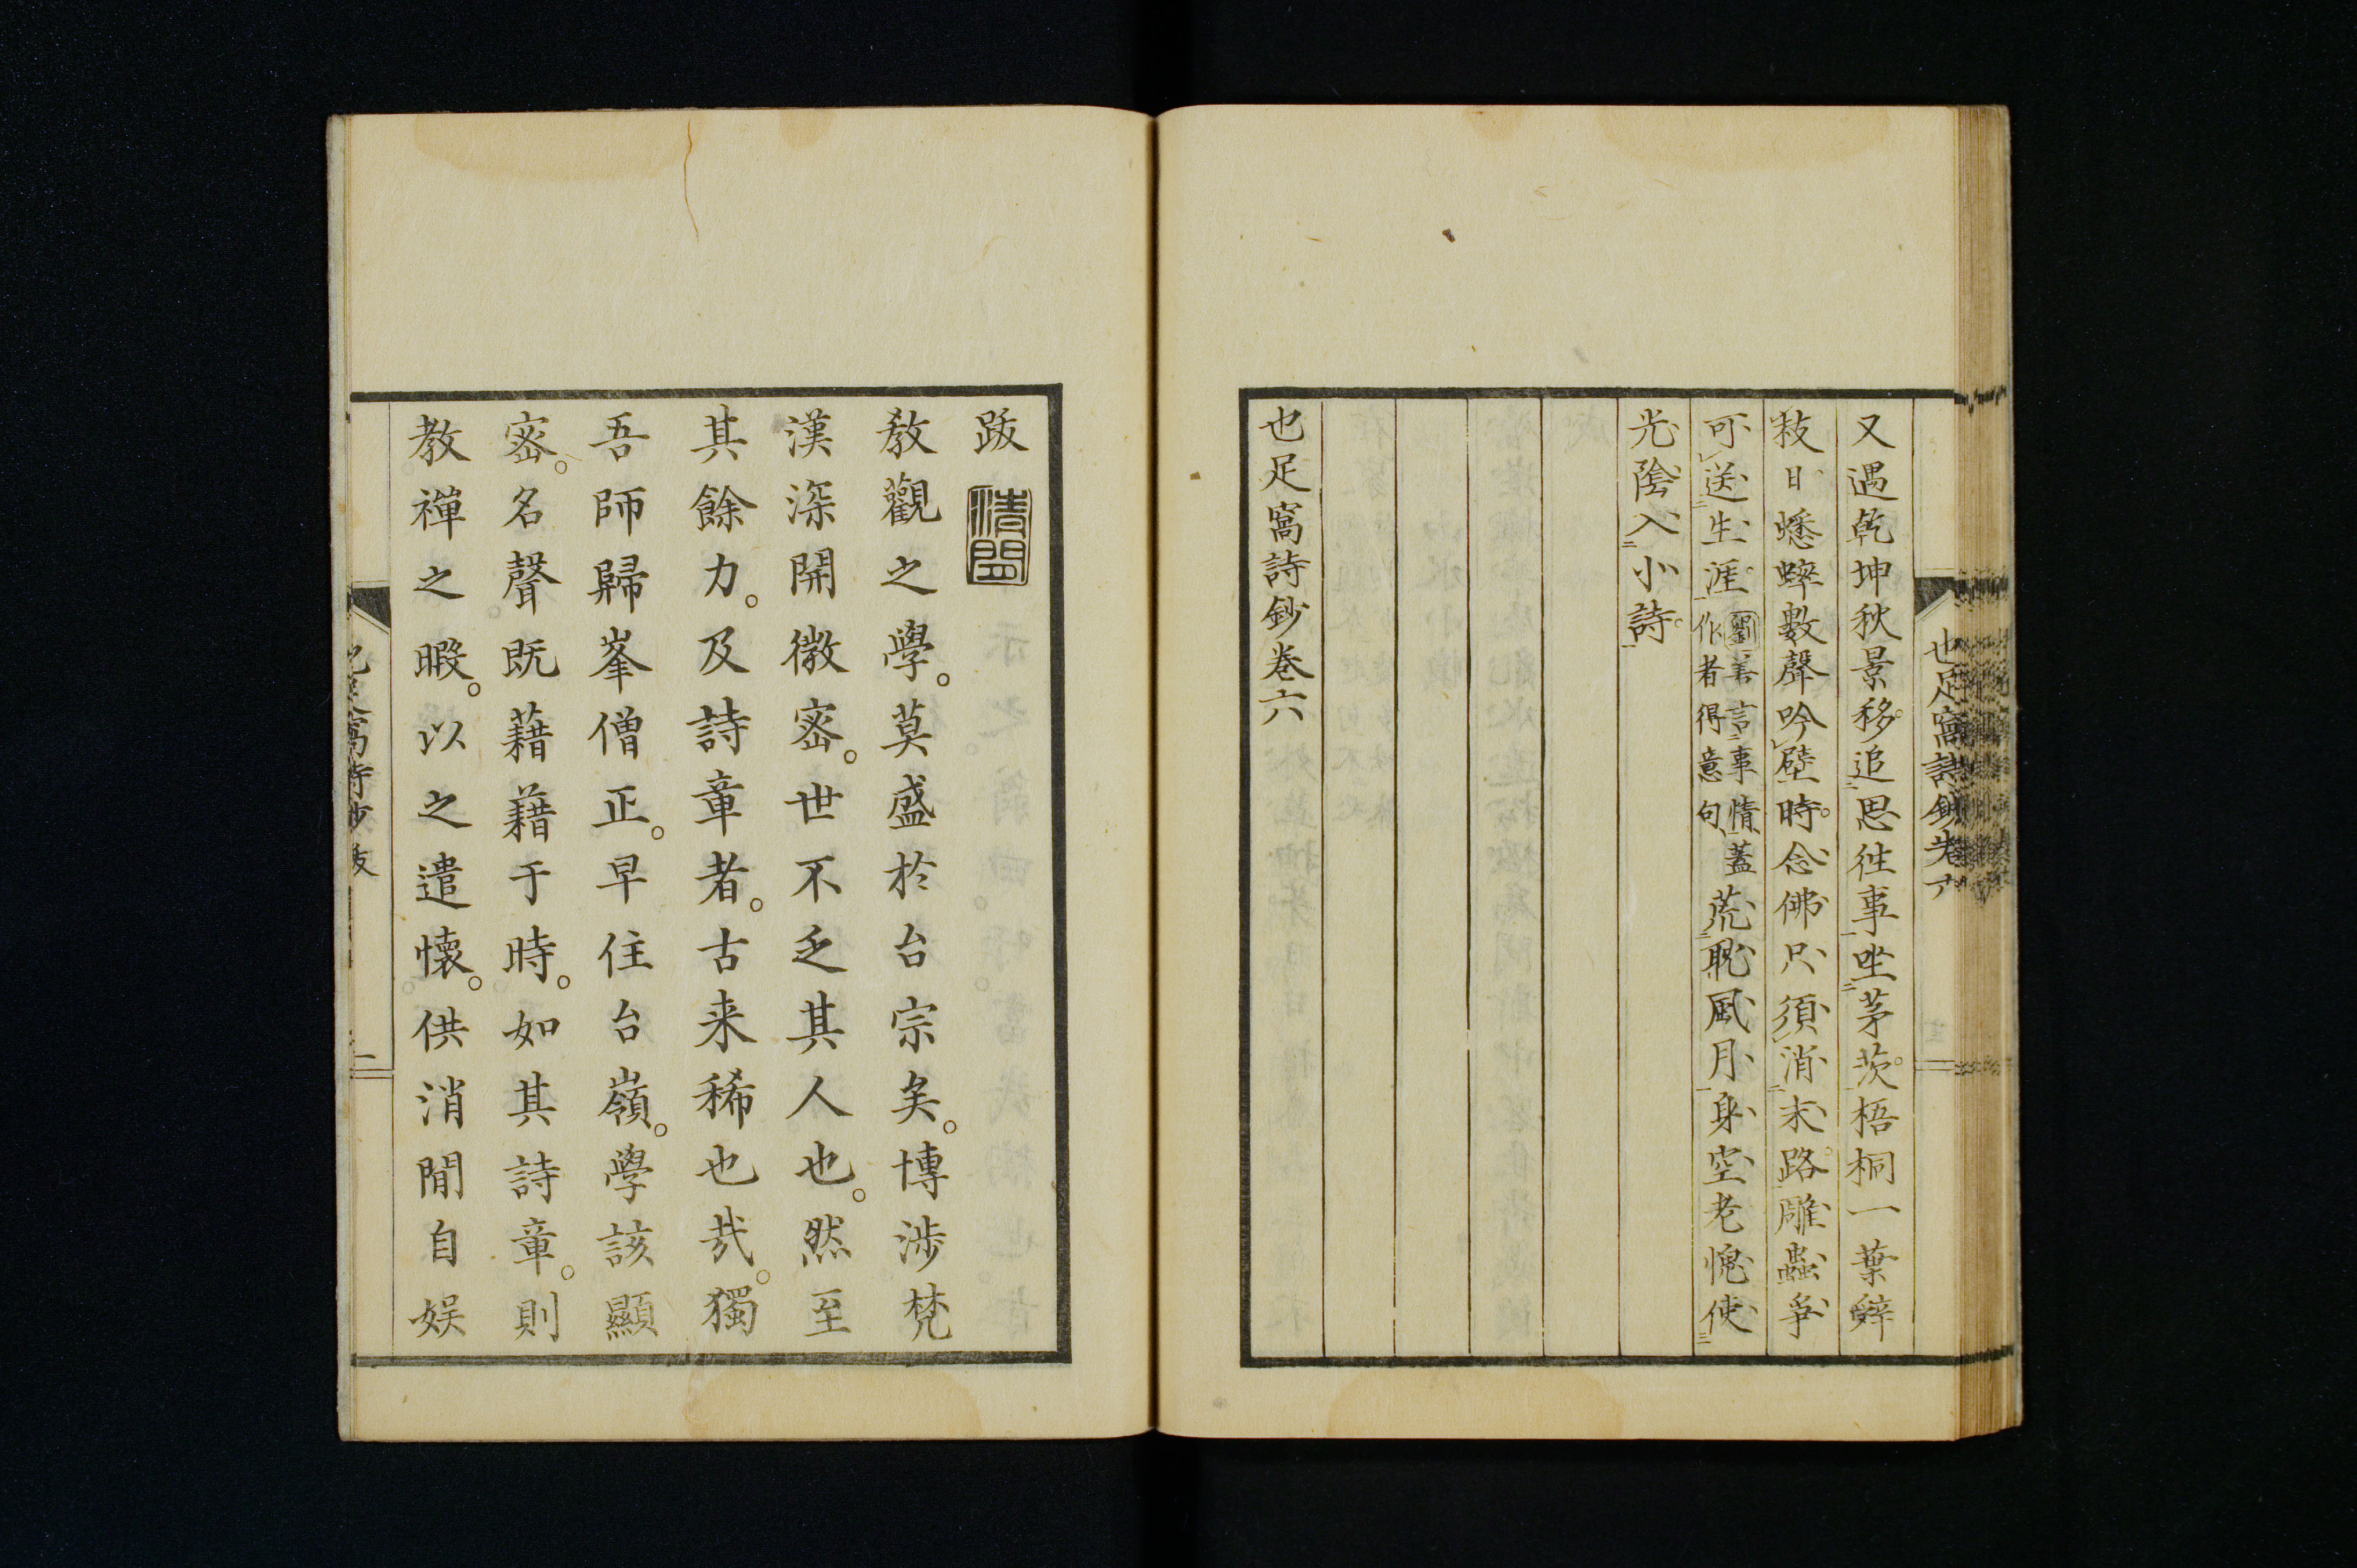 又遇乾坤秋景移追思徃事坐茅茨梧桐一葉辭
枝日蟋蟀數聲吟壁時念佛只須消末路雕蟲爭
可送生涯劉善言事情蓋作者得意句荒耽風月身空老愧使
光陰入小詩
也足窩詩鈔卷六
跋
教觀之學。莫盛於台宗矣。博涉梵
漢深開微密。世不乏其人也。然至
其餘力。及詩章者。古来稀也哉。獨
吾師歸峯僧正。早住台嶺。學該顯
密。名聲既藉藉于時。如其詩章。則
教禪之暇。以之遣懷。供消閒自娱